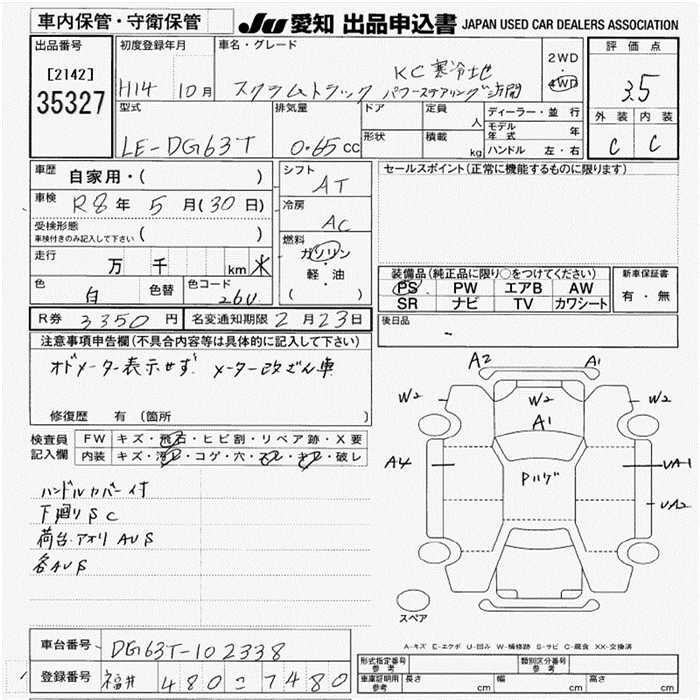 車内保管・守衛保管
JU 愛知 出品申込書 JAPAN USED CAR DEALERS ASSOCIATION
出品番号
[2142]
35327
初度登録年月
H14 10月
車名・グレード
KC 寒冷地
スクラムトラック パワーステアリング
2WD
4WD
評価点
3.5
外装 内装
C C
型式
LE-DG63T
排気量
0.65cc
ドア
形状
定員
人
積載
kg
ディーラー・並行
モデル年式 年
ハンドル 左・右
車歴 自家用・( )
車検 R8年 5月(30日)
受検形態
車検付きのみ記入して下さい ( )
走行 万 千 km ✳
色 白 色替
色コード 26U
シフト
AT
冷房
AC
燃料
ガソリン
・
軽・油
( )
セールスポイント(正常に機能するものに限ります)
装備品(純正品に限り○をつけてください)
PS PW エアB AW
SR ナビ TV カワシート
新車保証書
有・無
R券 3350円 名変通知期限 2月23日
後日品
-
注意事項申告欄(不具合内容等は具体的に記入して下さい)
オドメーター表示せず メーター改ざん車
修復歴 有 (箇所 )
検査員記入欄
FW キズ・飛石・ヒビ割・リペア跡・X要
内装 キズ・汚レ・コゲ・穴・スレ・キレ・破レ
ハンドルカバー付
下廻りSC
荷台.アオリ AUS
各AUS
A2 A1
W2 W2 W2
A1
A4 Pハゲ UA1
UA2
スペア
A-キズ E-エクボ U-凹み W-補修跡 S-サビ C-腐食 XX-交換済
車台番号 DG63T-102338
登録番号 福井 480 こ 7480
形式指定番号 参考
類別区分番号 参考
車庫証明用 参考 長さ cm 幅 cm 高さ cm